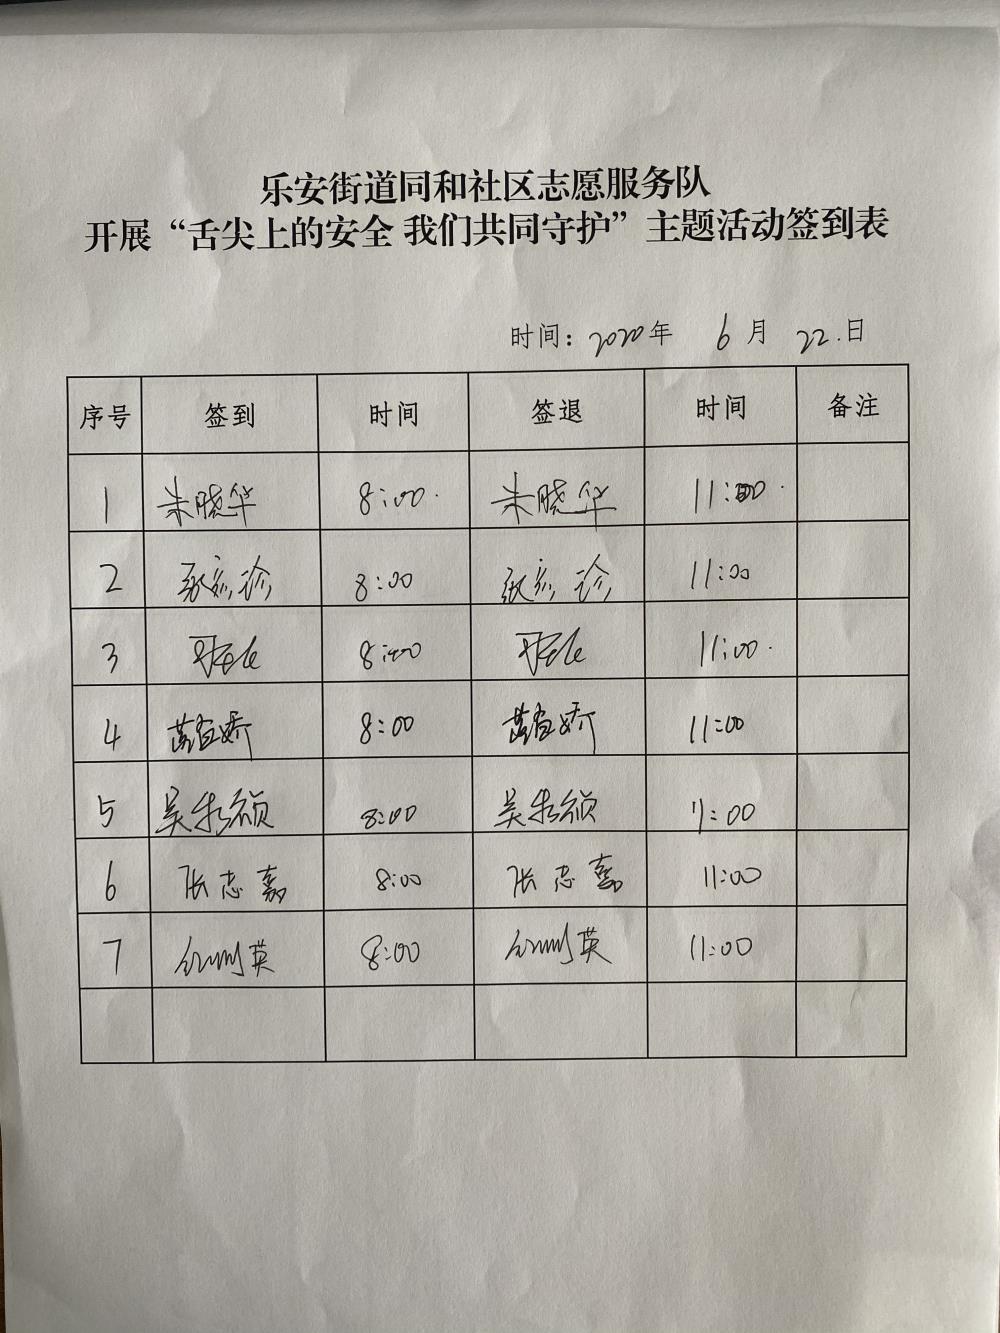 乐安街道同和社区志愿服务队
开展“舌尖上的安全 我们共同守护”主题活动签到表
时间：2020年 6月 22.日
序号 签到 时间 签退 时间 备注
1 朱晓华 8:00 朱晓华 11:00
2 8:00 11:00
3 8:00 11:00
4 8:00 11:00
5 吴 8:00 吴 11:00
6 张志嘉 8:00 张志嘉 11:00
7 英 8:00 英 11:00